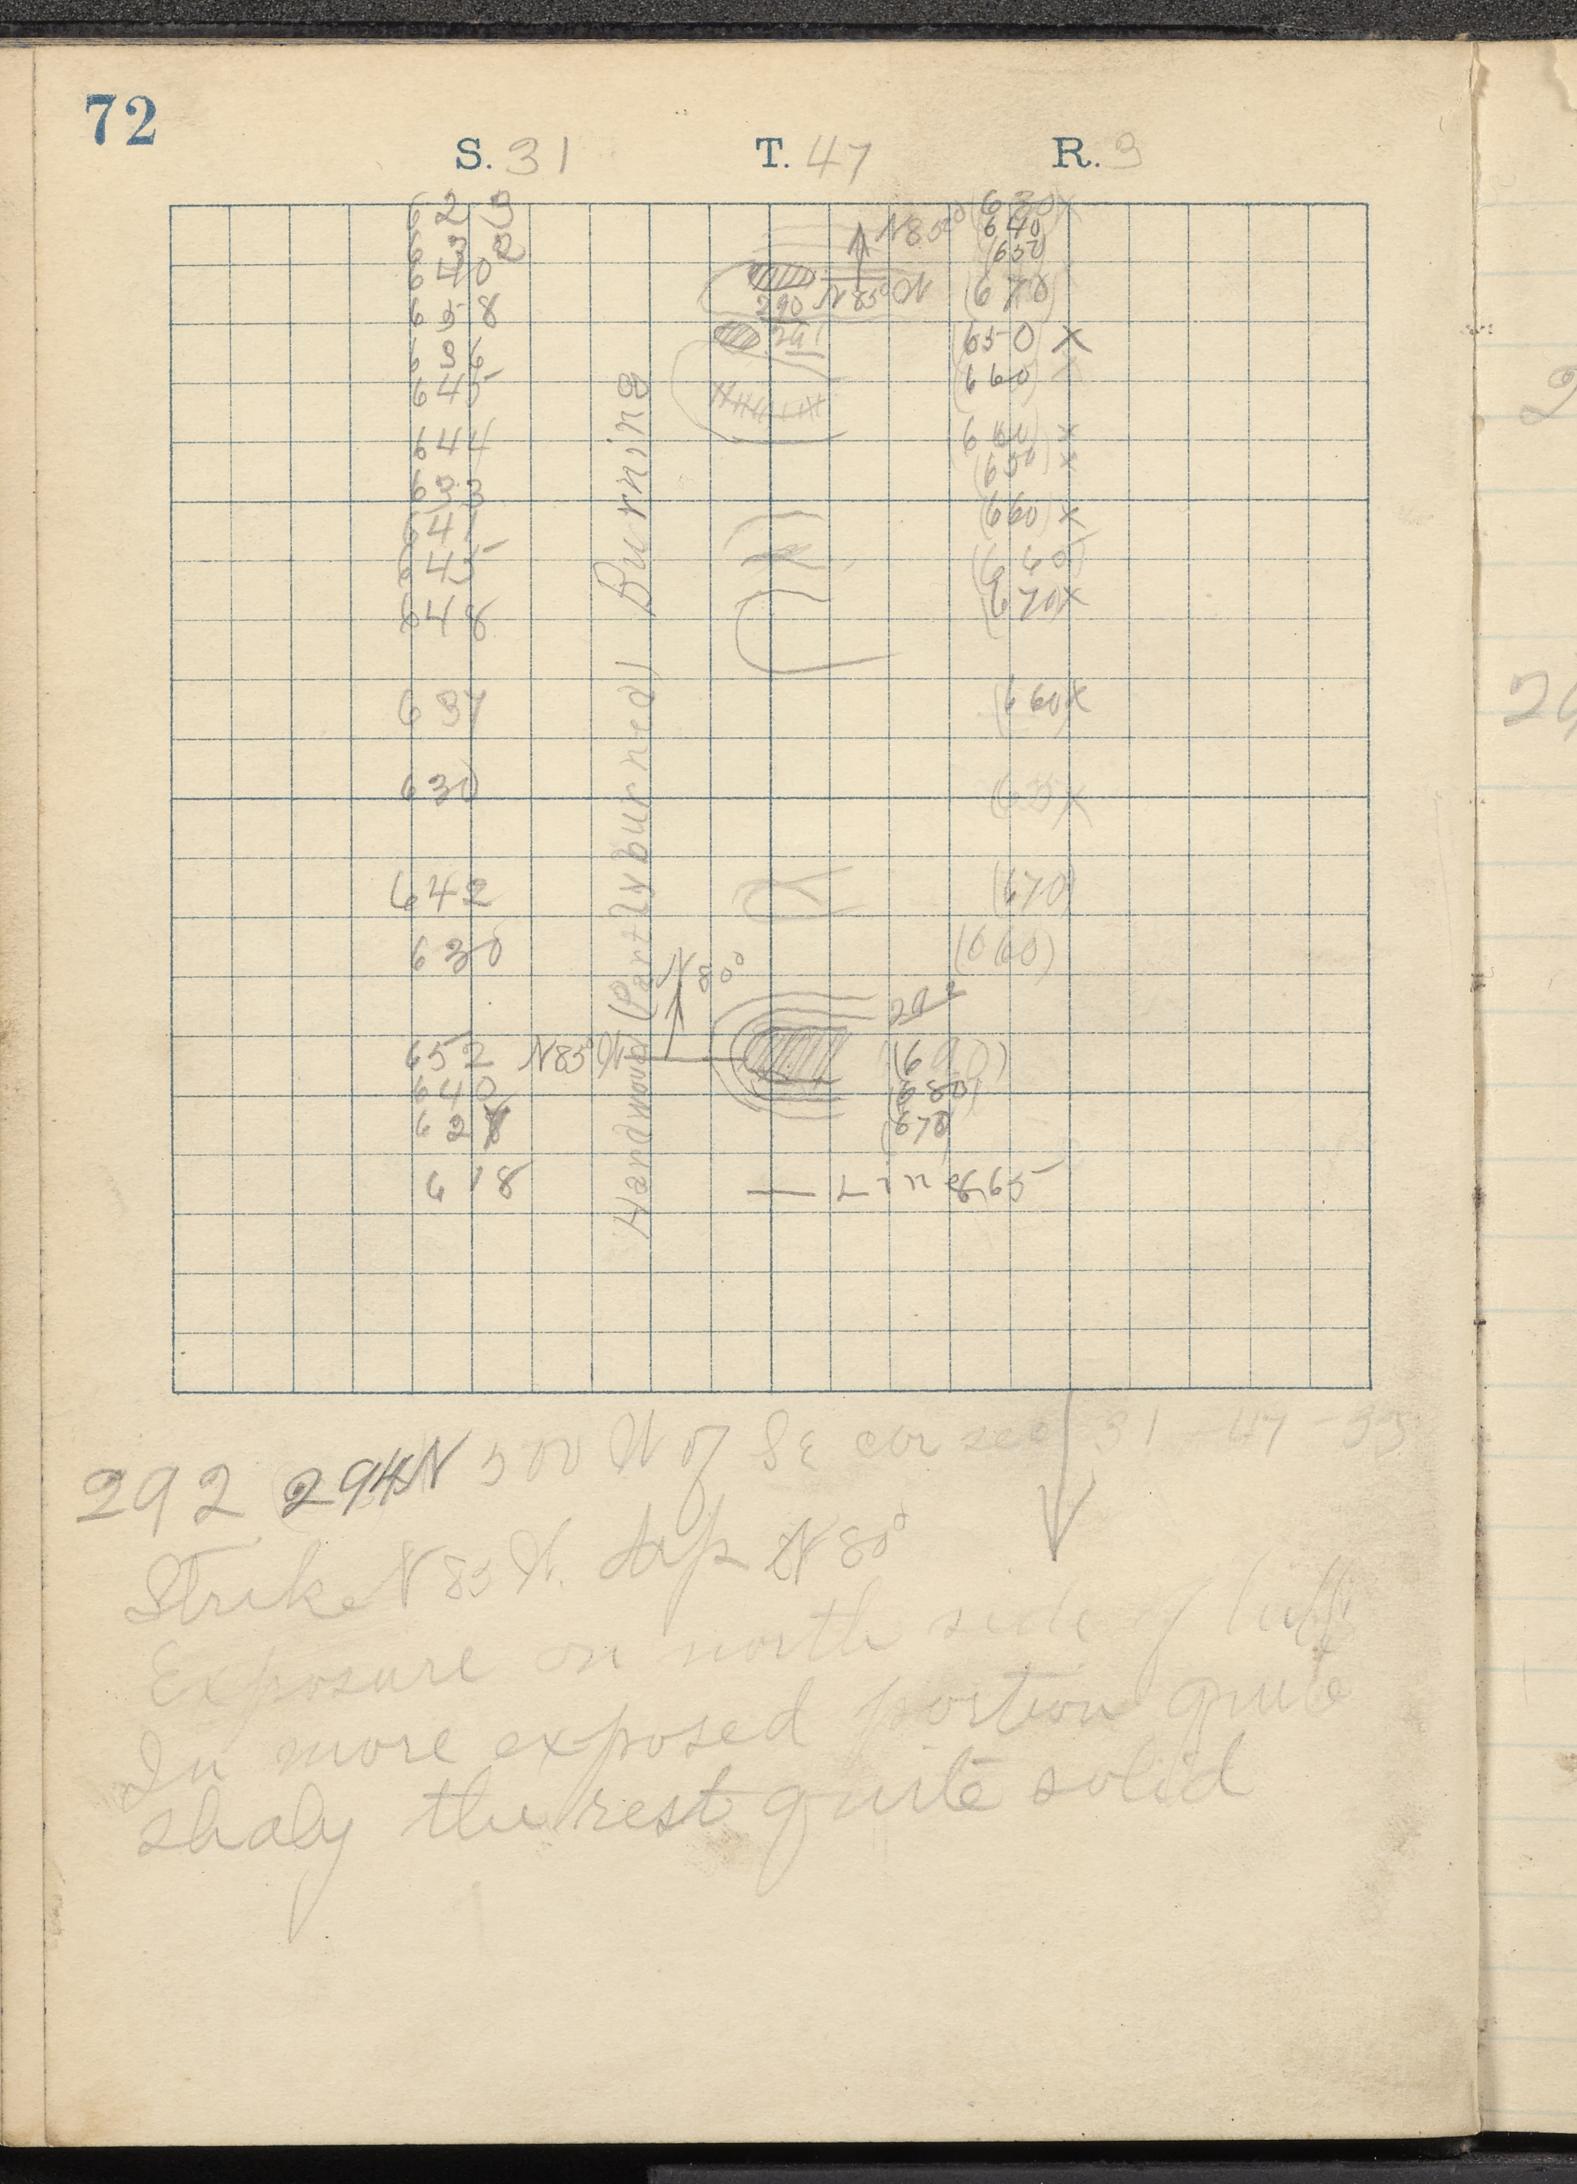 72
S. 31 T. 47 R. 3
623
632
640
658
636
645
644
633
641
645
648
637
630
642
630
652
640
628
618
Hardwood (Partly burned) Burning
N 80°
290 N 85° W
291
N 80°
N 85° W
292
(630) X
640
(650
(670)
(650) X
(660)
660) X
(650) X
(660) X
(660)
(670) X
(660 X
X
(670)
(660)
(690)
(680)
(670)
— Line 665
292 294 N 500 W of SE cor sec 31 - 47 - 33
Strike N 85 W. dip N 80°
Exposure on north side of bluff
In more exposed portion quite
shaly the rest quite solid